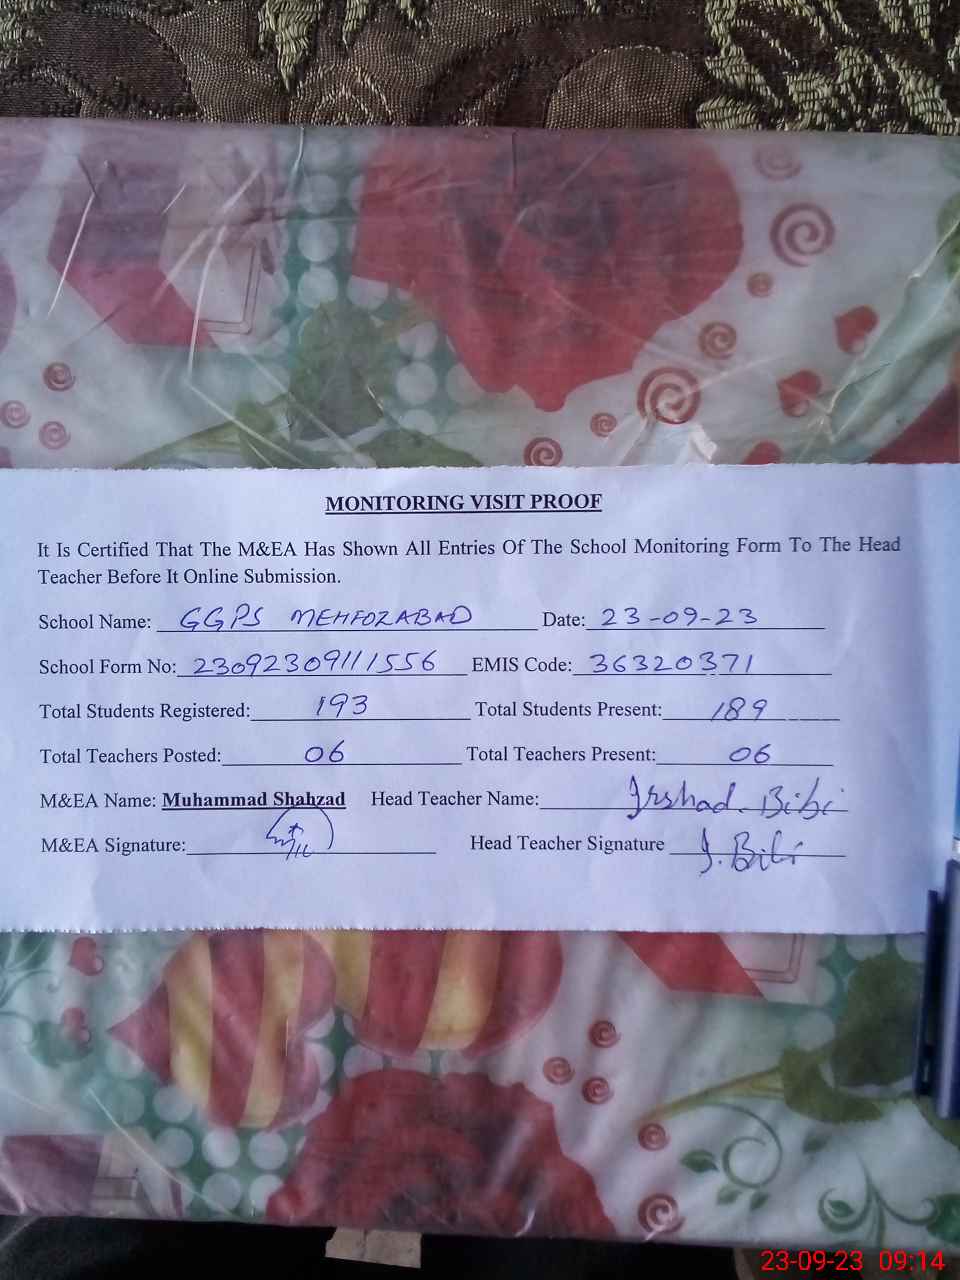 MONITORING VISIT PROOF
It Is Certified That The M&EA Has Shown All Entries Of The School Monitoring Form To The Head
Teacher Before It Online Submission.
School Name: GGPS MEHFOZABAD Date: 23-09-23
School Form No: 23092309111556 EMIS Code: 36320371
Total Students Registered: 193 Total Students Present: 189
Total Teachers Posted: 06 Total Teachers Present: 06
M&EA Name: Muhammad Shahzad Head Teacher Name: Irshad Bibi
M&EA Signature: Head Teacher Signature I. Bibi
23-09-23 09:14